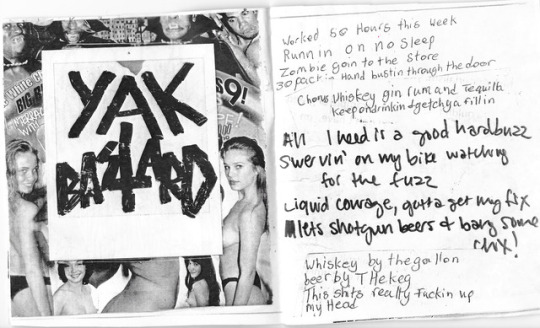 9!
YAK
BASTARD
Worked 50 Hours this week
Runnin on no Sleep
Zombie goin to the Store
30 pack in Hand bustin through the door
Chorus Whiskey gin rum and Tequilla
Keep on drinkin + getchya fill in
All I need is a good hard buzz
Swervin' on my bike watching
for the fuzz
Liquid courage, gotta get my fix
lets shotgun beers & bang some
chix!
Whiskey by the gallon
beer by THe keg
This shits really fuckin up
my Head